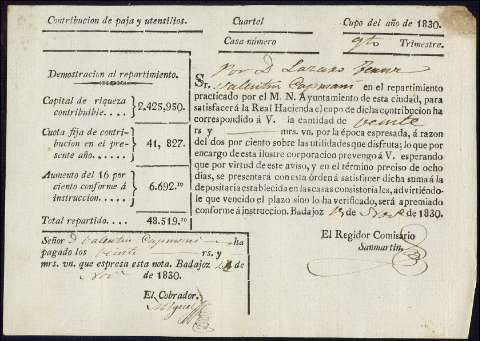 Contribucion de paja y utensilios.
Cuartel
Cupo del año de 1830.
Casa número
Trimestre.
Demostracion al repartimiento.
Capital de riqueza
contribuible. . . . 2,425,950.
Cuota fija de contri-
bucion en el pre-
sente año. . . . . 41, 827.
Aumento del 16 por
ciento conforme á
instruccion. . . . . 6.692.
Total repartido. . . . 48.519.
Por D. Lazaro
Sr. Valentin Capmani en el repartimiento
practicado por el M. N. Ayuntamiento de esta ciudad, para
satisfacer á la Real Hacienda el cupo de dicha contribucion ha
correspondido á V. la cantidad de veinte
rs y mrs. vn. por la época espresada, á razon
del dos por ciento sobre las utilidades que disfruta; lo que por
encargo de esta ilustre corporacion prevengo á V. esperando
que por virtud de este aviso, y en el término preciso de ocho
dias, se presentará con esta órden á satisfacer dicha suma á la
depositaría establecida en las casas consistoriales, advirtiéndo-
le que vencido el plazo sino lo ha verificado, será apremiado
conforme á instruccion. Badajoz de 1830.
El Regidor Comisario
Sanmartin.
Señor D. Valentin Capmani ha
pagado los veinte rs. y
mrs. vn. que espresa esta nota. Badajoz de
de 1830.
El Cobrador.